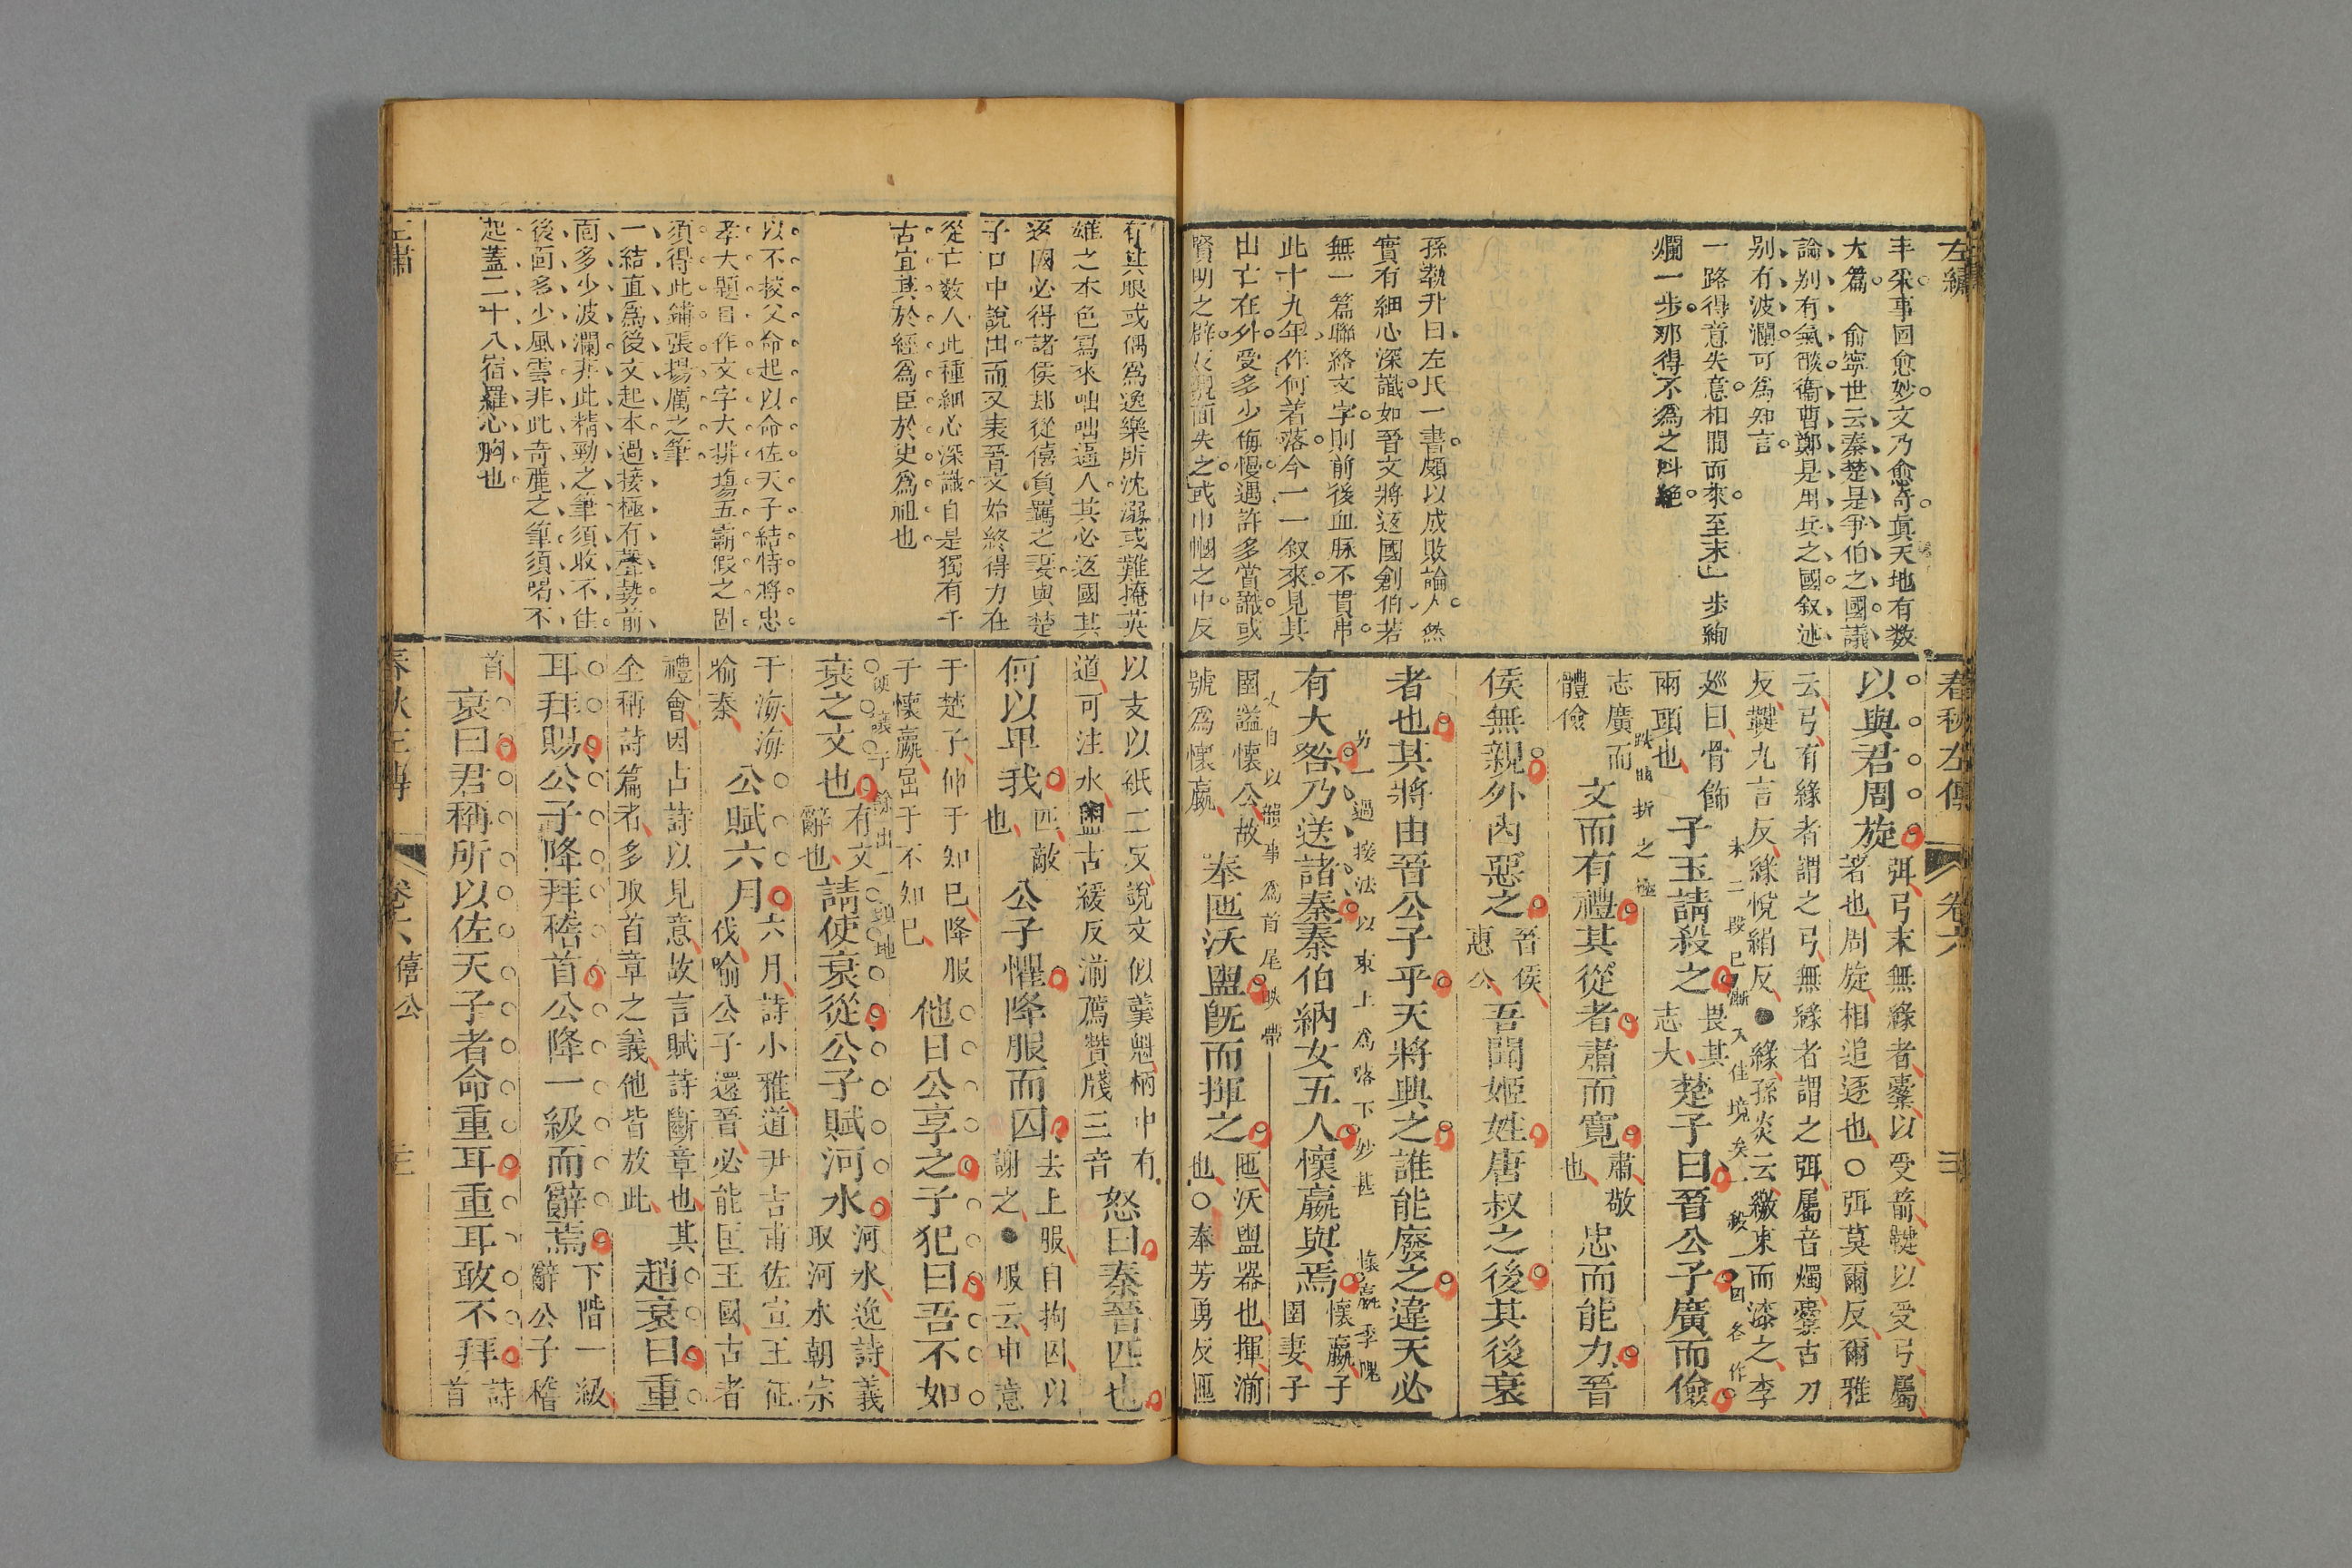 左繡
丰采事回愈妙文乃愈奇真天地有数
大篇　俞寧世云秦楚是爭伯之國議
論别有氣燄衞曹鄭是用兵之國叙述
别有波瀾可爲知言
一路得意失意相間而來至末一步絢
爛一步那得不爲之叫絶
孫執升曰左氏一書頗以成敗論人然
實有細心深識如晉文將返國創伯若
無一篇聯絡文字則前後血脉不貫串
此十九年作何着落今一一叙來見其
出亡在外受多少侮慢遇許多賞識或
賢明之辟反覿面失之或巾幗之中反
春秋左傳
卷六
以與君周旋
弭弓末無緣者櫜以受箭鞬以受弓屬
著也周旋相追逐也○弭莫爾反爾雅
云弓有緣者謂之弓無緣者謂之弭屬音燭櫜古刀
反鞬九言反緣悅絹反●緣孫炎云繳束而漆之李
廵曰骨飾
兩頭也
子玉請殺之
畏其
志大
楚子曰晉公子廣而儉
志廣而
體儉
文而有禮其從者肅而寬
肅敬
也
忠而能力晉
侯無親外內惡之
晉侯
惠公
吾聞姬姓唐叔之後其後衰
者也其將由晉公子乎天將興之誰能廢之違天必
有大咎乃送諸秦秦伯納女五人懷嬴與焉
懷嬴子
圉妻子
圉謚懷公故
號爲懷嬴
奉匜沃盥旣而揮之
匜沃盥器也揮湔
也○奉芳勇反匜
末二段已漸入佳境矣一
跌頓折之極
另一過接法以束上爲落下妙甚
懷嬴季隗
又自以韻事爲首尾映帶
有其眼或偶爲逸樂所沈溺或難掩英
雄之本色寫來咄咄逼人其必返國其
返國必得諸侯却從僖負羈之妻與楚
子口中說出而又表晉文始終得力在
從亡数人此種細心深識自是獨有千
古宜其於經爲臣於史爲祖也
以不校父命起以命佐天子結恃將忠
孝大題目作文字大排塲五霸假之固
須得此鋪張揚厲之筆
一結直爲後文起本過接極有聲勢前
面多少波瀾非此精勁之筆須收不住
後面多少風雲非此奇麗之筆須唱不
起蓋二十八宿羅心胸也
以支以紙二反說文似羹魁柄中有
道可注水盥古緩反湔薦贊牋三音
怒曰秦晉匹也
何以卑我
匹敵
也
公子懼降服而囚
去上服自拘囚以
謝之●服云申意
于楚子伸于知已降服
于懷嬴屈于不知已
他日公享之子犯曰吾不如
衰之文也
有文
辭也
請使衰從公子賦河水
河水逸詩義
取河水朝宗
于海海
喻秦
公賦六月
六月詩小雅道尹吉甫佐宣王征
伐喻公子還晉必能匡王國古者
禮會因古詩以見意故言賦詩斷章也其
全稱詩篇者多取首章之義他皆放此
趙衰曰重
耳拜賜公子降拜稽首公降一級而辭焉
下階一級
辭公子稽
首
衰曰君稱所以佐天子者命重耳重耳敢不拜
詩
首
左繡
春秋左傳
卷六 僖公